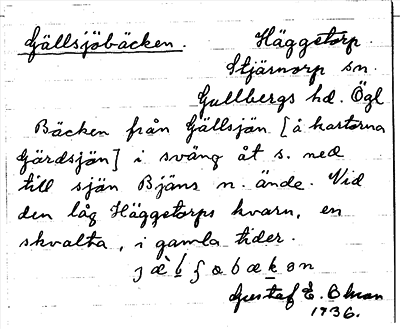 Gällsjöbäcken. Häggetorp.
Stjärnorp sn.
Gullbergs hd. Ögl
Bäcken från Gällsjön [å kartorna
Gärdsjön] i sväng åt s. ned
till sjön Bjäns n. ände. Vid
den låg Häggetorps kvarn, en
skvalta, i gamla tider.
Gustaf E. Ohman
1736.